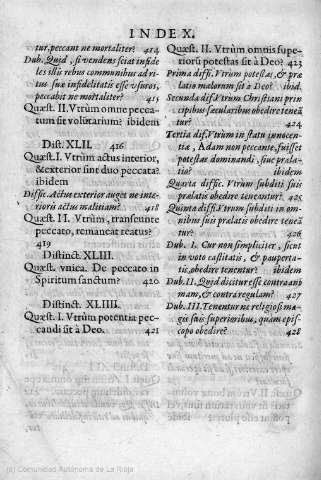 INDEX.
tur, peccant ne mortaliter? 414
Dub. Quid, si vendens sciat infide
les illis rebus communibus ad ri
tus suæ infidelitatis esse vsuros,
peccabit ne mortaliter? 415
Quæst. II. Vtrùm omne pecca
tum sit volūtarium? ibidem
Dist. XLII. 416
Quæst. I. Vtrùm actus interior,
& exterior sint duo peccata?
ibidem
Diffic. Actus exterior auget ne inte
rioris actus malitiam? 418
Quæst. II. Vtrùm, transeunte
peccato, remaneat reatus?
419
Distinct. XLIII.
Quæst. vnica. De peccato in
Spiritum sanctum? 420
Distinct. XLIIII.
Quæst. I. Vtrùm potentia pec
candi sit à Deo. 421
Quæst. II. Vtrùm omnis supe
rioris potestas sit à Deo? 423
Prima diffic. Vtrum potestas, & præ
latio malorum sit à Deo? ibid.
Secunda diff. Vtrum Christiani prin
cipibus sæcularibus obedire teneā
tur? 424.
Tertia dif. Vtrùm in statu innocen
tiæ, Adam non peccante, fuisset
potestas dominandi, siue præla-
tio? ibidem
Quarta diffic. Vtrum subditi suis
prælatis obedire tenentur? 425.
Quinta diffic. Vtrum subditi in om-
nibus suis prælatis obedire tenean
tur? 426.
Dub. I. Cur non simpliciter, sicut
in voto castitatis, & pauperta-
tis, obedire tenentur? ibidem
Dub. II. Quid dicitur esse contra ani
mam, & contra regulam? 427
Dub. III. Tenentur ne religiosi ma-
gis suis superioribus, quam epis-
copo obedire? 428
(c) Comunidad Autónoma de La Rioja